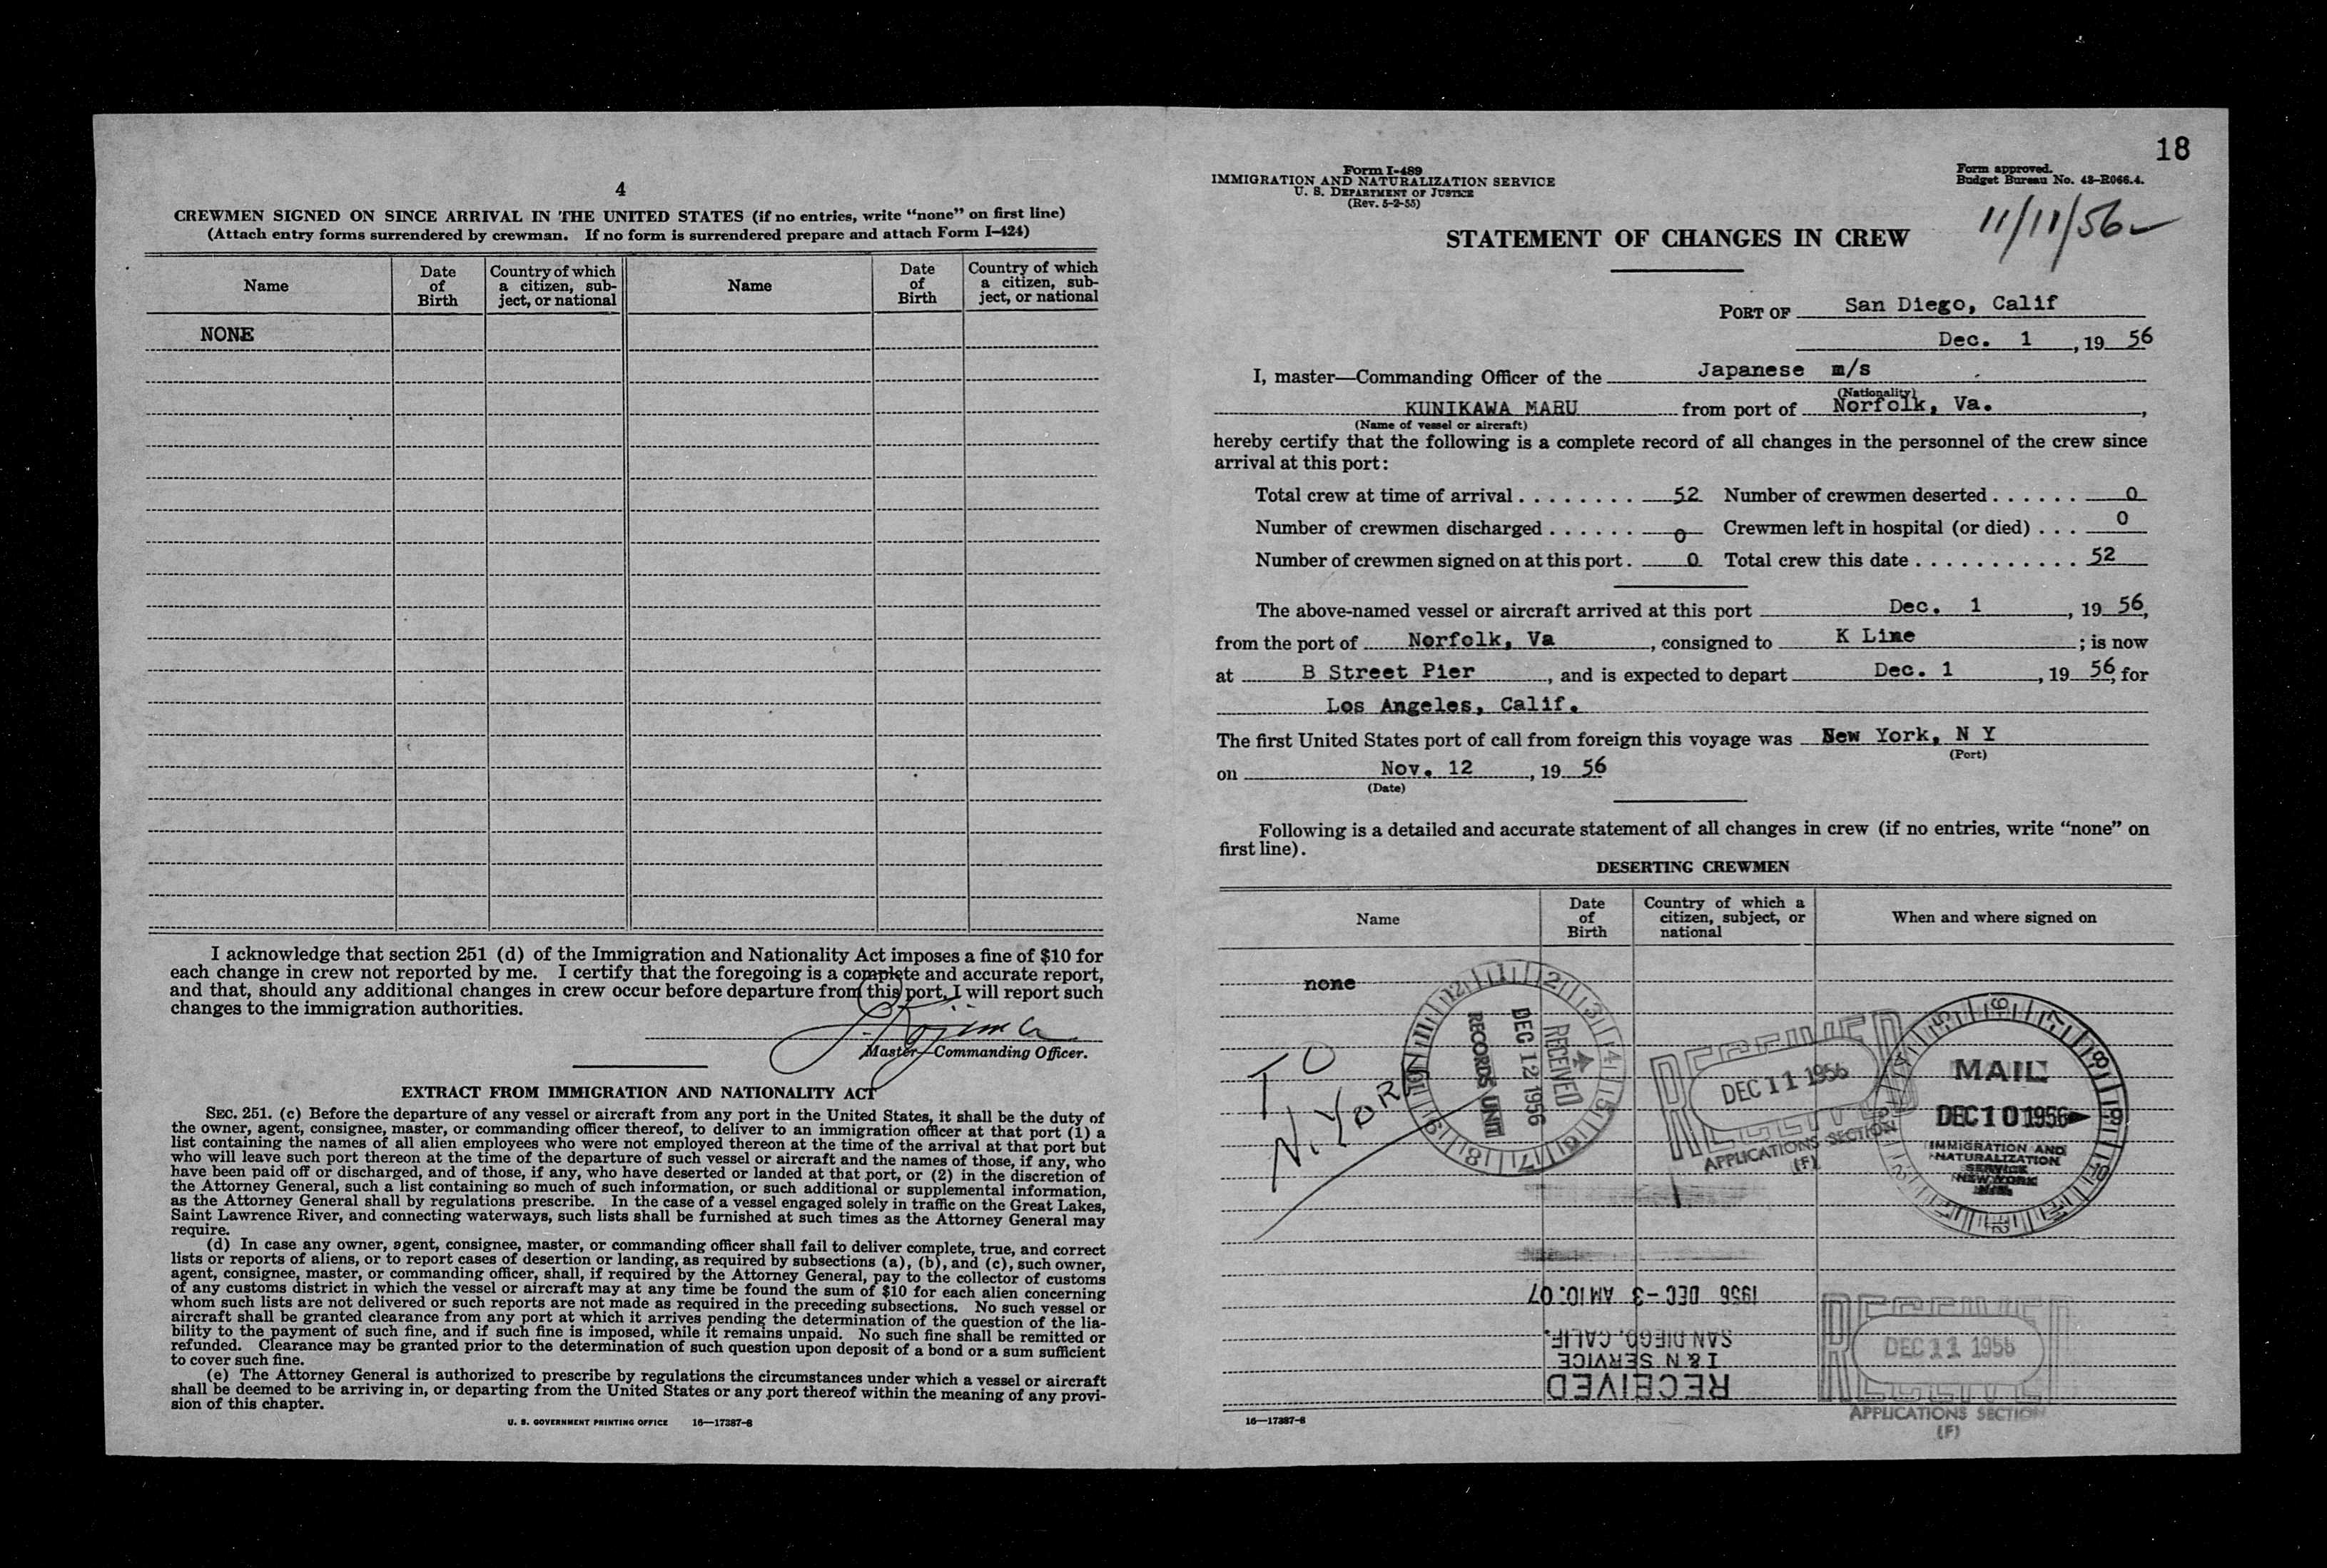 4
CREWMEN SIGNED ON SINCE ARRIVAL IN THE UNITED STATES (if no entries, write “none” on first line)
(Attach entry forms surrendered by crewman. If no form is surrendered prepare and attach Form I-424)
Name Date of Birth Country of which a citizen, sub-ject, or national Name Date of Birth Country of which a citizen, sub-ject, or national
NONE
I acknowledge that section 251 (d) of the Immigration and Nationality Act imposes a fine of $10 for
each change in crew not reported by me. I certify that the foregoing is a complete and accurate report,
and that, should any additional changes in crew occur before departure from this port, I will report such
changes to the immigration authorities.
Master—Commanding Officer.
EXTRACT FROM IMMIGRATION AND NATIONALITY ACT
SEC. 251. (c) Before the departure of any vessel or aircraft from any port in the United States, it shall be the duty of
the owner, agent, consignee, master, or commanding officer thereof, to deliver to an immigration officer at that port (1) a
list containing the names of all alien employees who were not employed thereon at the time of the arrival at that port but
who will leave such port thereon at the time of the departure of such vessel or aircraft and the names of those, if any, who
have been paid off or discharged, and of those, if any, who have deserted or landed at that port, or (2) in the discretion of
the Attorney General, such a list containing so much of such information, or such additional or supplemental information,
as the Attorney General shall by regulations prescribe. In the case of a vessel engaged solely in traffic on the Great Lakes,
Saint Lawrence River, and connecting waterways, such lists shall be furnished at such times as the Attorney General may
require.
(d) In case any owner, agent, consignee, master, or commanding officer shall fail to deliver complete, true, and correct
lists or reports of aliens, or to report cases of desertion or landing, as required by subsections (a), (b), and (c), such owner,
agent, consignee, master, or commanding officer, shall, if required by the Attorney General, pay to the collector of customs
of any customs district in which the vessel or aircraft may at any time be found the sum of $10 for each alien concerning
whom such lists are not delivered or such reports are not made as required in the preceding subsections. No such vessel or
aircraft shall be granted clearance from any port at which it arrives pending the determination of the question of the lia-
bility to the payment of such fine, and if such fine is imposed, while it remains unpaid. No such fine shall be remitted or
refunded. Clearance may be granted prior to the determination of such question upon deposit of a bond or a sum sufficient
to cover such fine.
(e) The Attorney General is authorized to prescribe by regulations the circumstances under which a vessel or aircraft
shall be deemed to be arriving in, or departing from the United States or any port thereof within the meaning of any provi-
sion of this chapter.
U. S. GOVERNMENT PRINTING OFFICE 16—17387-8
18
Form I-489
IMMIGRATION AND NATURALIZATION SERVICE
U. S. DEPARTMENT OF JUSTICE
(Rev. 5-2-55)
Form approved.
Budget Bureau No. 43-R066.4.
11/11/56
STATEMENT OF CHANGES IN CREW
PORT OF San Diego, Calif
Dec. 1, 19 56
I, master—Commanding Officer of the Japanese m/s
(Nationality)
KUNIKAWA MARU from port of Norfolk, Va.,
(Name of vessel or aircraft)
hereby certify that the following is a complete record of all changes in the personnel of the crew since
arrival at this port:
Total crew at time of arrival ........ 52 Number of crewmen deserted ...... 0
Number of crewmen discharged ...... 0 Crewmen left in hospital (or died) ... 0
Number of crewmen signed on at this port. 0 Total crew this date ............ 52
The above-named vessel or aircraft arrived at this port Dec. 1, 19 56,
from the port of Norfolk, Va, consigned to K Line; is now
at B Street Pier, and is expected to depart Dec. 1, 19 56, for
Los Angeles, Calif.
The first United States port of call from foreign this voyage was New York, N Y
(Port)
on Nov. 12, 19 56
(Date)
Following is a detailed and accurate statement of all changes in crew (if no entries, write “none” on
first line).
DESERTING CREWMEN
Name Date of Birth Country of which a citizen, subject, or national When and where signed on
none
TO
N. YORK
RECEIVED
DEC 12 1956
RECORDS UNIT
RECEIVED
DEC 11 1956
APPLICATIONS SECTION
(F)
MAIL
DEC 10 1956
IMMIGRATION AND
NATURALIZATION
SERVICE
NEW YORK
N.Y.
RECEIVED
I & N SERVICE
SAN DIEGO, CALIF.
1956 DEC -3 AM 10:07
RECEIVED
DEC 11 1956
APPLICATIONS SECTION
(F)
16—17387-8